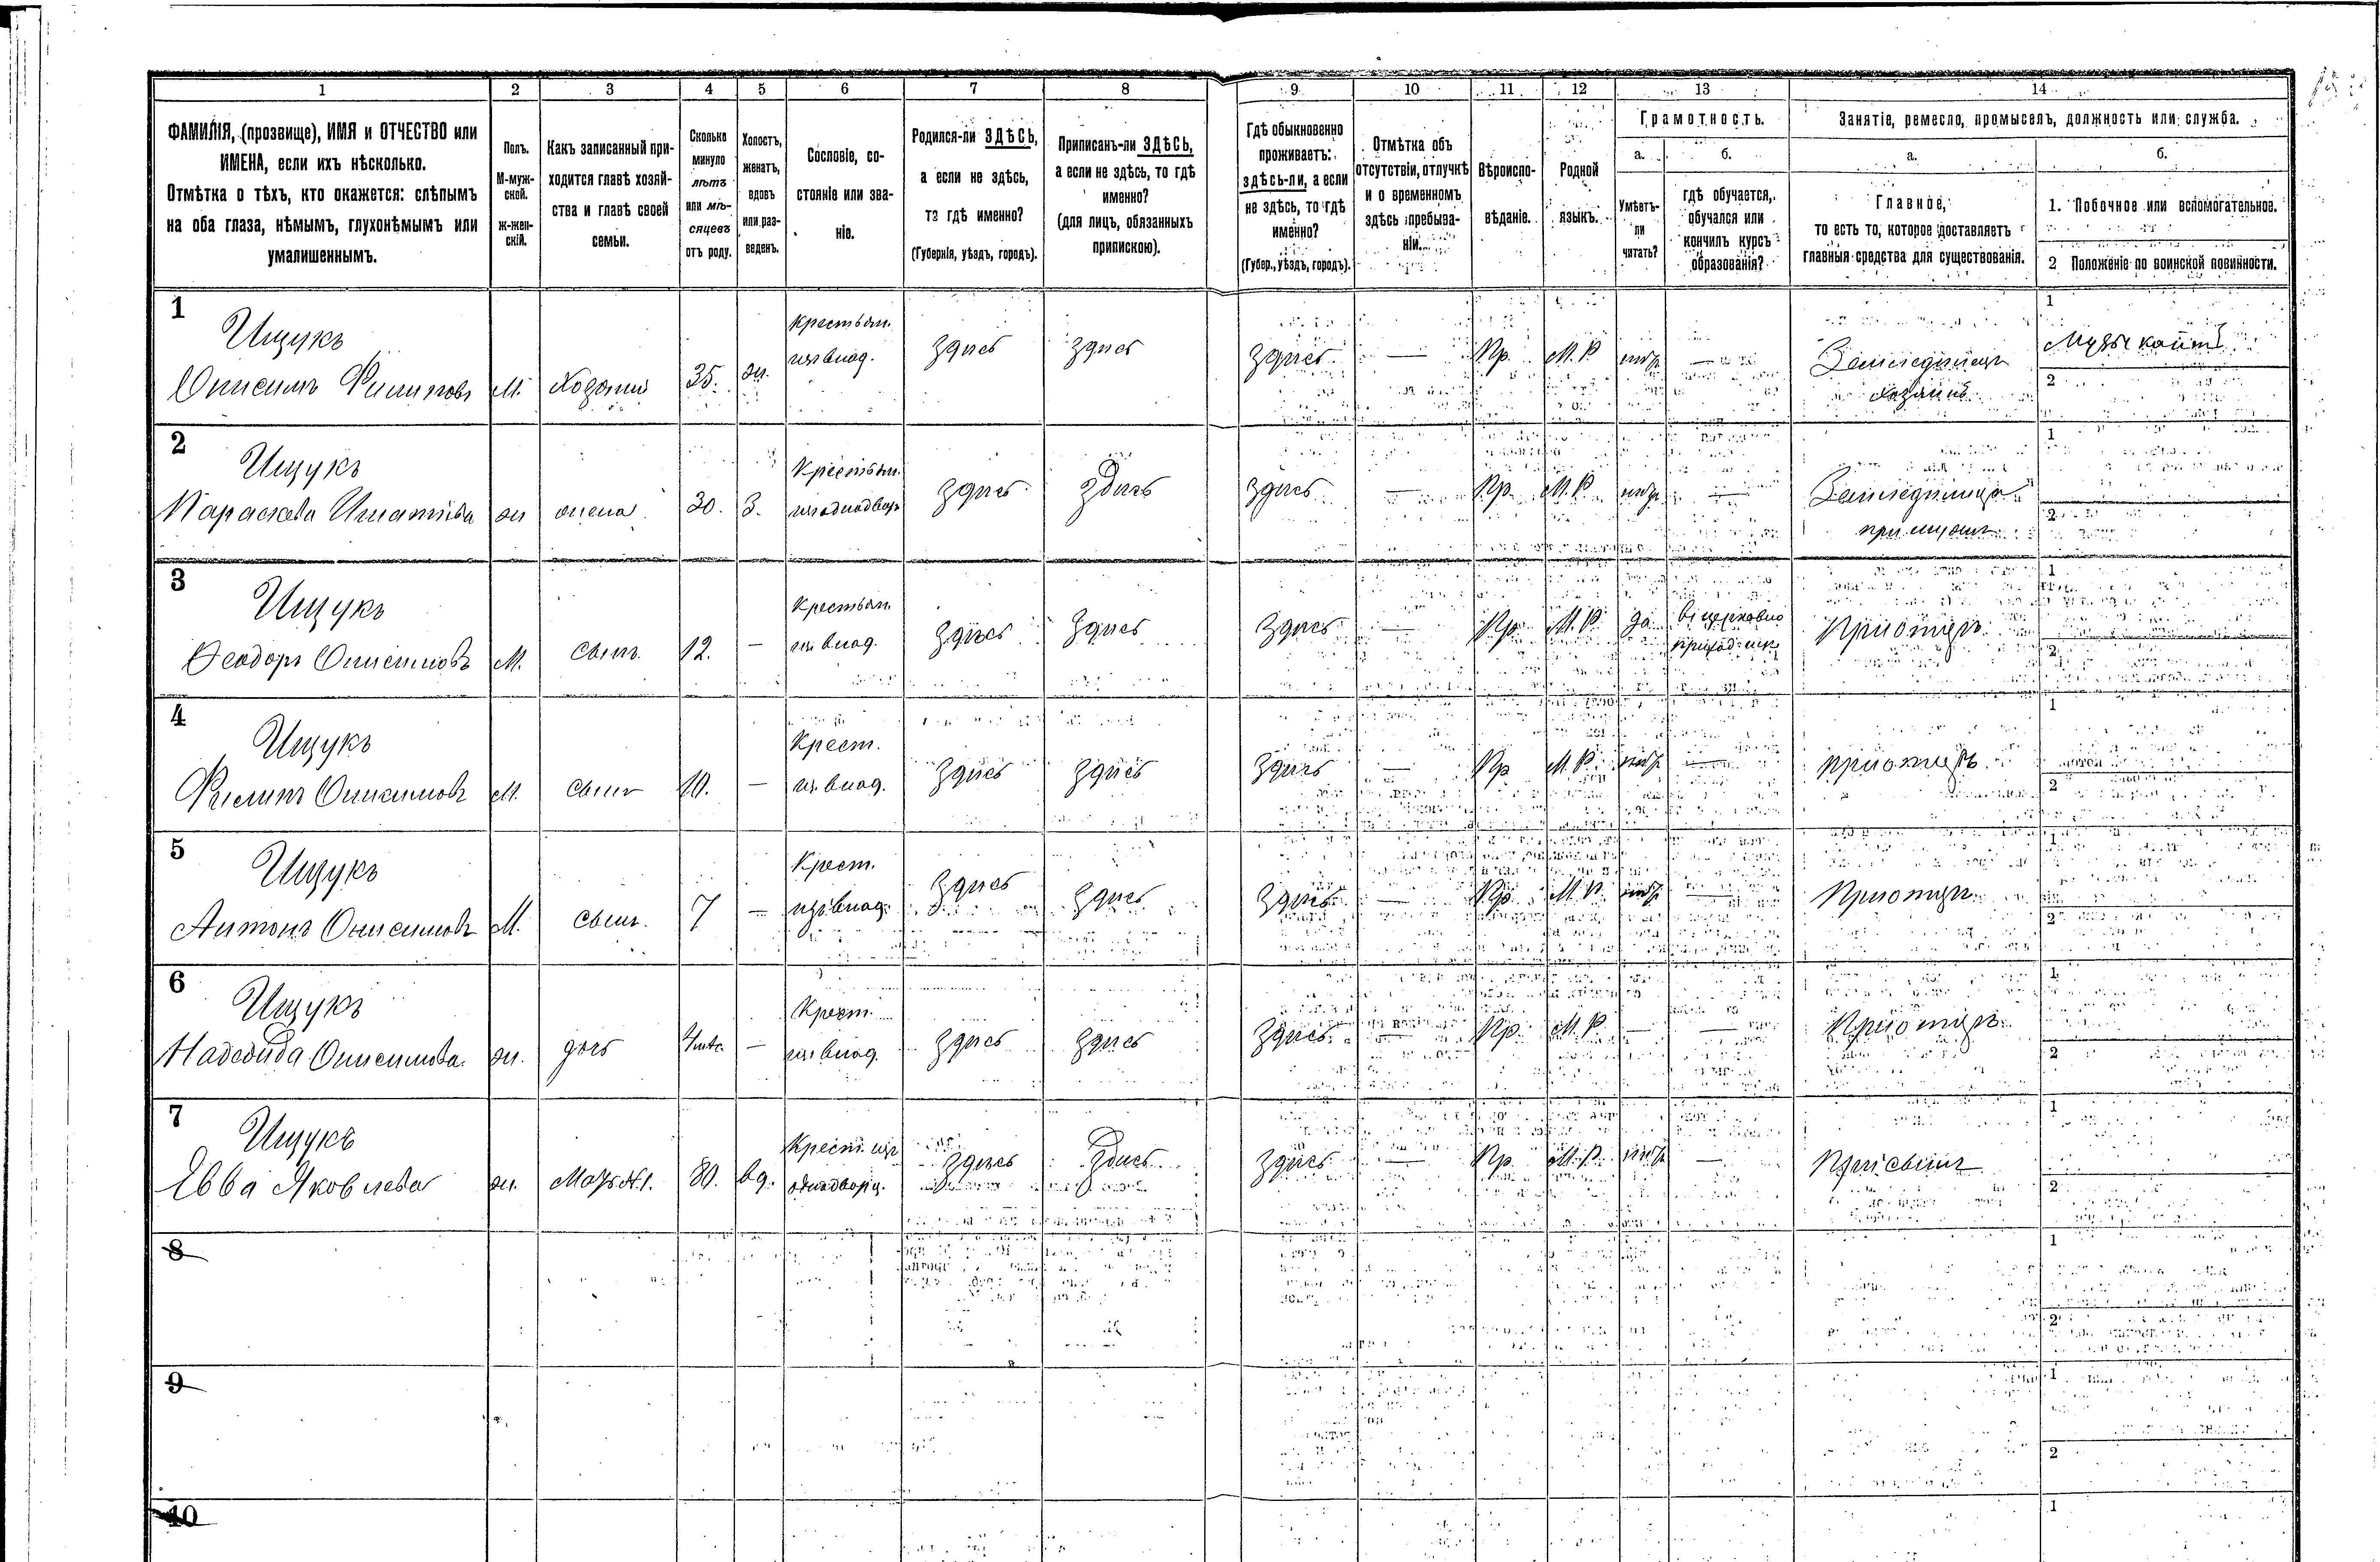 1 2 3 4 5 6 7 8 9 10 11 12 13 14
ФАМИЛІЯ, (прозвище), ИМЯ и ОТЧЕСТВО или
ИМЕНА, если ихъ нѣсколько.
Отмѣтка о тѣхъ, кто окажется: слѣпымъ
на оба глаза, нѣмымъ, глухонѣмымъ или
умалишеннымъ.
Полъ.
М-муж-
ской.
Ж-жен-
скій.
Какъ записанный при-
ходится главѣ хозяй-
ства и главѣ своей
семьи.
Сколько
минуло
лѣтъ
или мѣ-
сяцевъ
отъ роду.
Холостъ,
женатъ,
вдовъ
или раз-
веденъ.
Сословіе, со-
стояніе или зва-
ніе.
Родился-ли ЗДѢСЬ,
а если не здѣсь,
то гдѣ именно?
(Губернія, уѣздъ, городъ).
Приписанъ-ли ЗДѢСЬ,
а если не здѣсь, то гдѣ
именно?
(для лицъ, обязанныхъ
припискою).
Гдѣ обыкновенно
проживаетъ:
здѣсь-ли, а если
не здѣсь, то гдѣ
именно?
(Губер., уѣздъ, городъ).
Отмѣтка объ
отсутствіи, отлучкѣ
и о временномъ
здѣсь пребыва-
ніи.
Вѣроиспо-
вѣданіе.
Родной
языкъ.
Грамотность.
а.
Умѣетъ-
ли
читать?
б.
гдѣ обучается,
обучался или
кончилъ курсъ
образованія?
Занятіе, ремесло, промыселъ, должность или служба.
а.
Главное,
то есть то, которое доставляетъ
главныя средства для существованія.
б.
1. Побочное или вспомогательное.
2 Положеніе по воинской повинности.
1
Ищукъ
Онисимъ Филиповъ М. Хозяинъ 35. ж.
Крестьян.
изъ влад.
здись здись здись — Пр. М. Р. нѣтъ —
Земледѣлецъ
хозяинъ
1
2
2
Ищукъ
Параскева Игнатіева ж жена 30. З.
Крестьян.
изъ однодвор
здись здись здись — Пр. М. Р. нѣтъ —
Земледѣлица
при мужѣ
1
2
3
Ищукъ
Ѳеодоръ Онисимовъ М. сынъ 12. —
Крестьян.
изъ влад.
здись здись здись — Пр. М. Р. да
въ церковно
приход. шк.
При отцѣ
1
2
4
Ищукъ
Филипъ Онисимовъ М. сынъ 10. —
Крест.
изъ влад.
здись здись здись — Пр М. Р. нѣтъ —
при отцѣ
1
2
5
Ищукъ
Антонъ Онисимовъ М. сынъ. 7 —
Крест.
изъ влад.
здись здись здись — Пр. М. Р. нѣтъ —
При отцѣ
1
2
6
Ищукъ
Надежда Онисимова. ж. дочь —
Крест.
изъ влад.
здись здись здись — Пр. М. Р. — —
При отцѣ
1
2
7
Ищукъ
Евва Яковлева ж. Мать №1. 80. вд.
Крест. изъ
однодворц.
здись здись здись — Пр. М. Р. нѣтъ —
При сынѣ
1
2
8
1
2
9
1
2
10
1